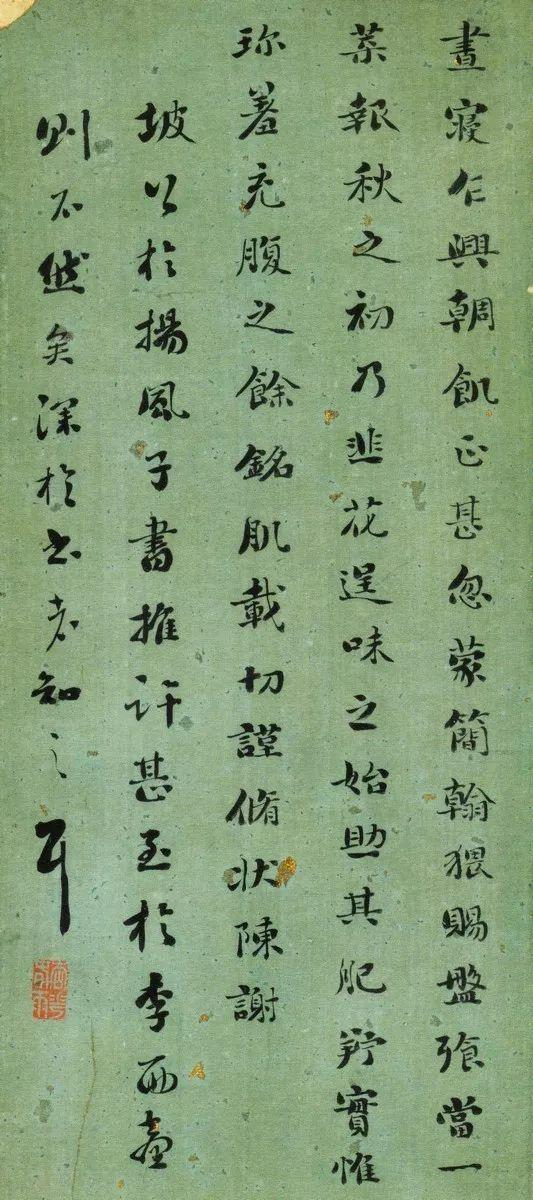 晝寢乍興朝飢正甚忽蒙簡翰猥賜盤飱當一
葉報秋之初乃韭花逞味之始助其肥羜實惟
珎羞充腹之餘銘肌載切謹脩狀陳謝
坡公於楊風子書推許甚至於李西臺
則不然矣深於書者知之耳